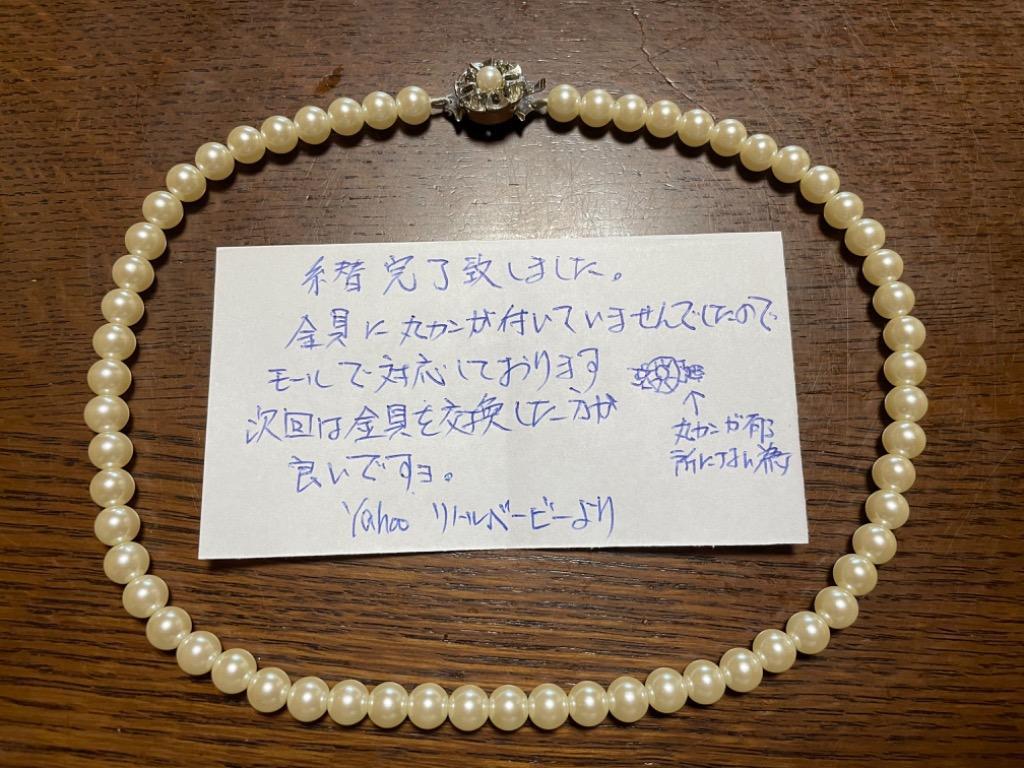 糸替完了致しました。
金具に丸カンが付いていませんでしたので
モールで対応しております
次回は金具を交換した方が
良いですョ。
Yahoo リトルベービーより
↑
丸カンが有る
所にない為